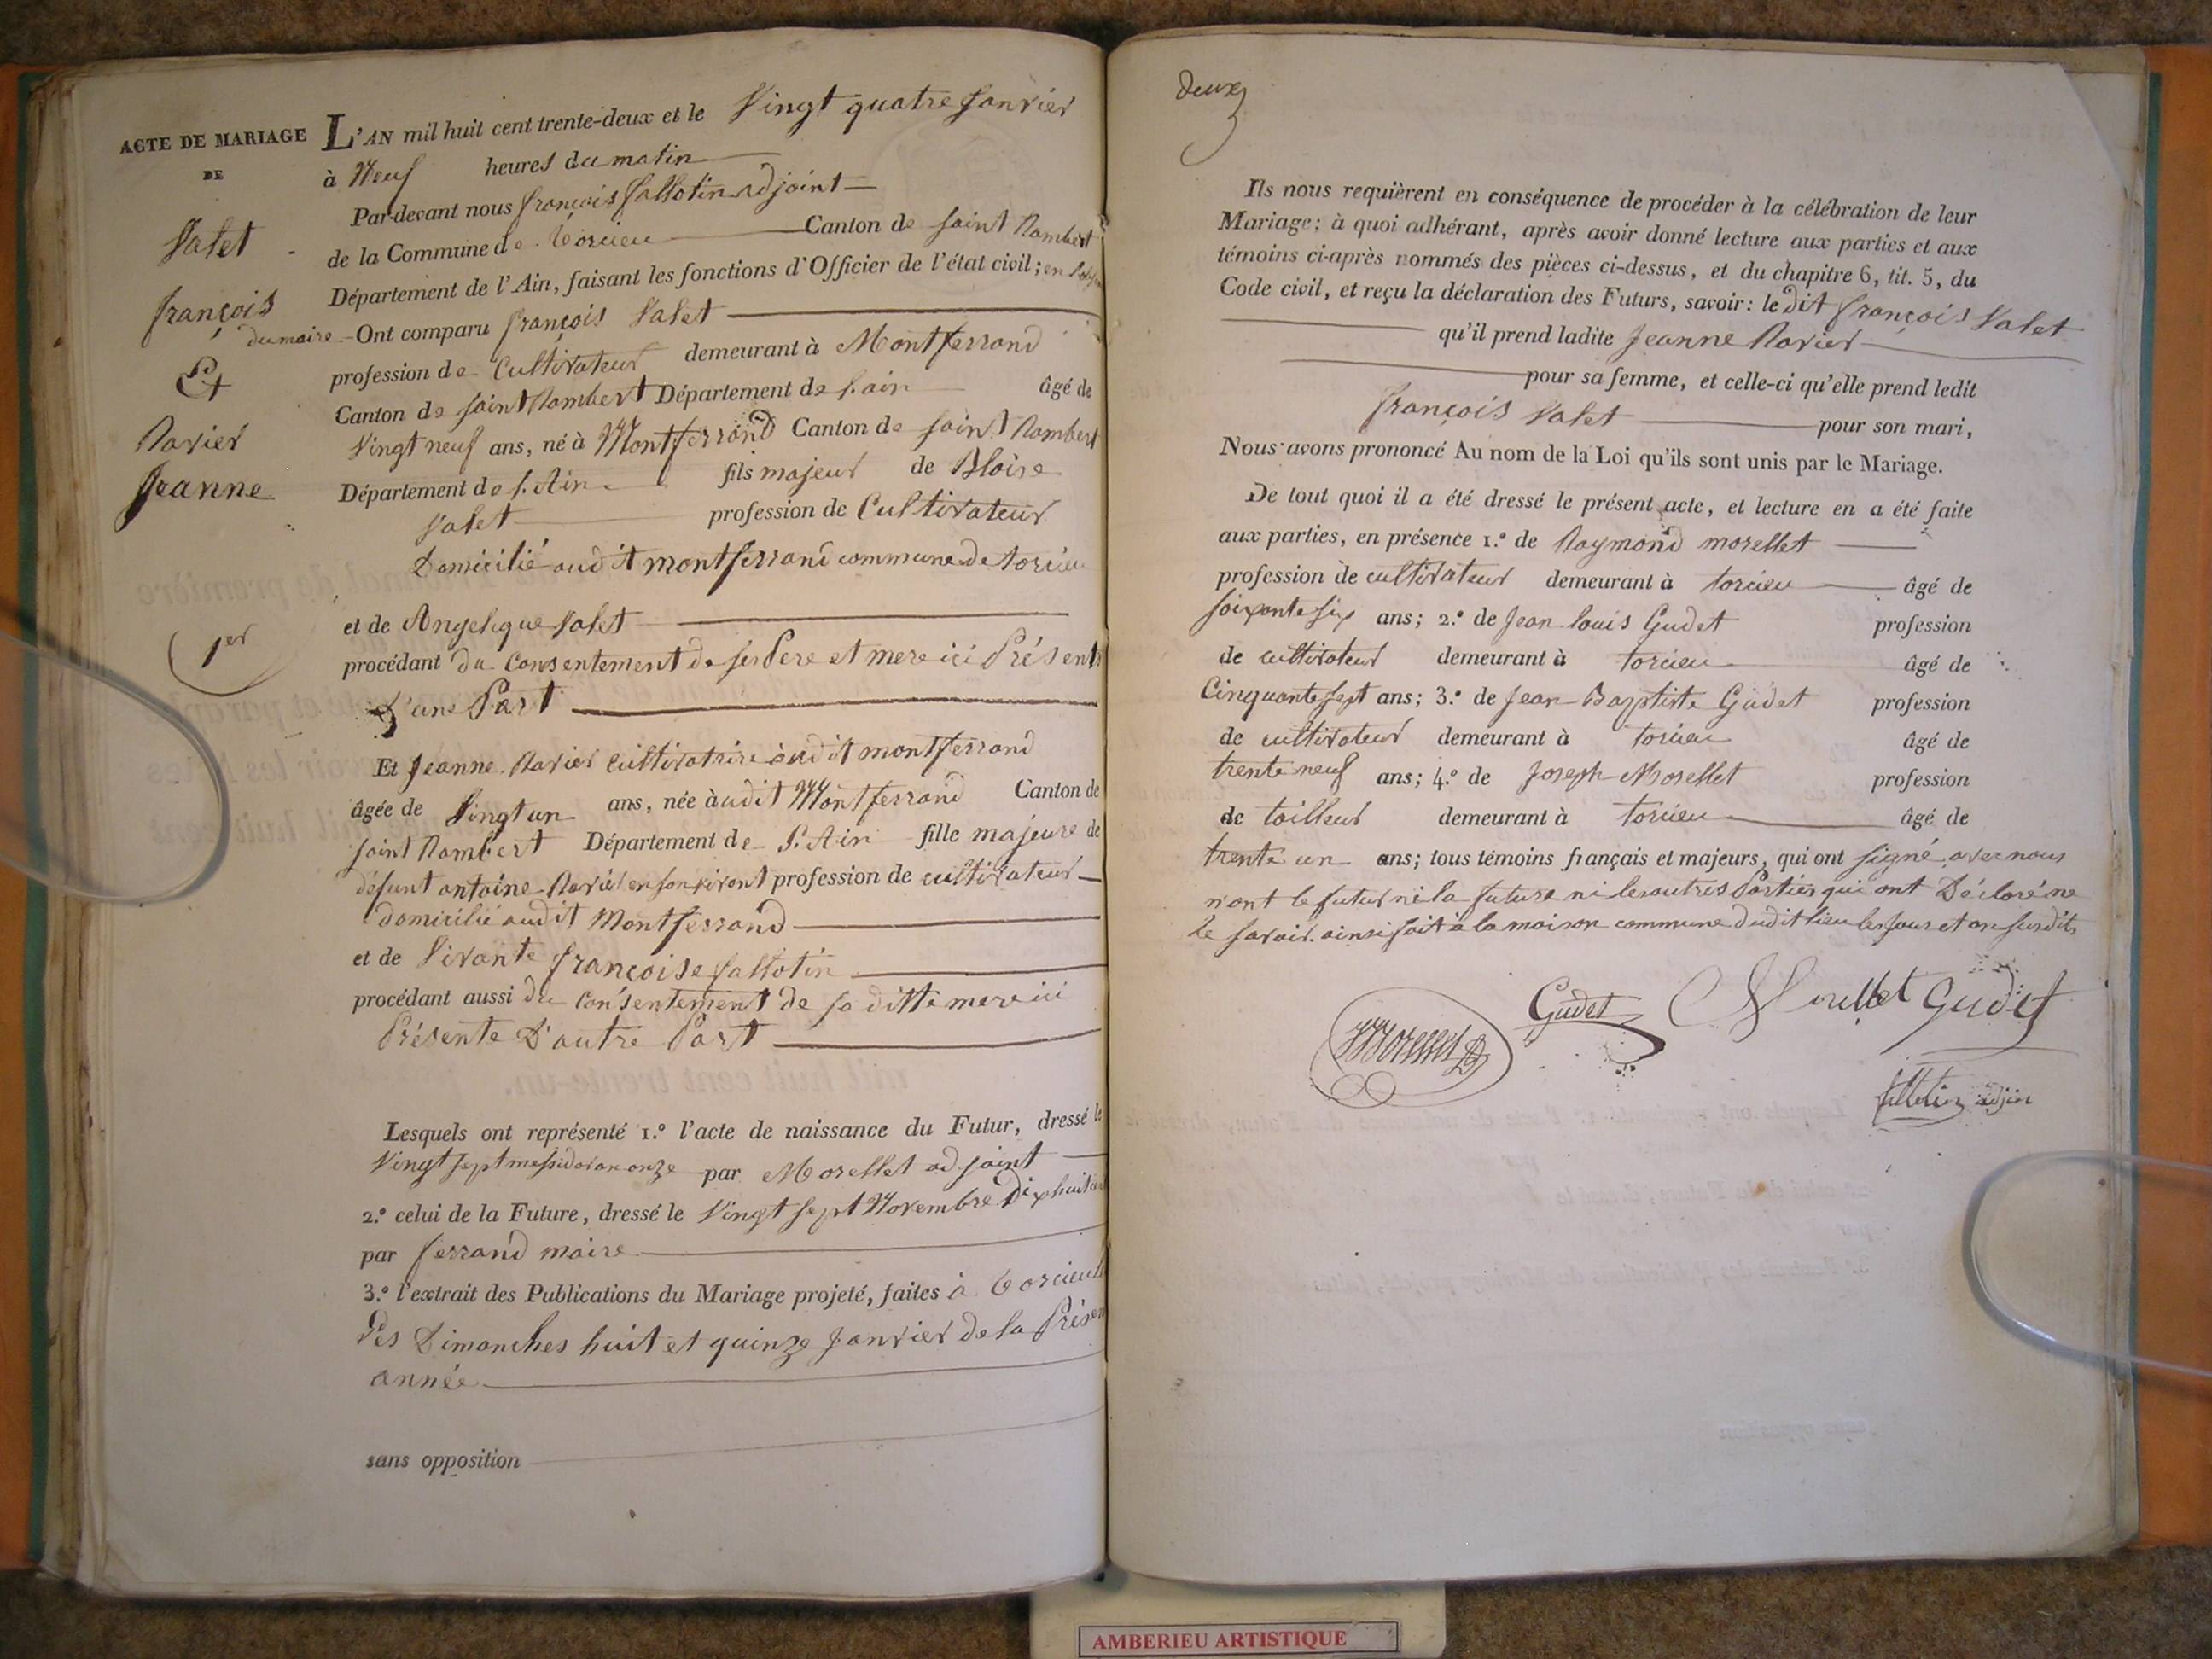 ACTE DE MARIAGE
DE
Valet
françois
Et
Ravier
Jeanne
1er
L'AN mil huit cent trente-deux et le Vingt quatre Janvier
à Neuf heures du matin
Par-devant nous françois fallotin adjoint
de la Commune de Torcieu Canton de saint Rambert
Département de l'Ain, faisant les fonctions d'Officier de l'état civil; en
du maire - Ont comparu françois Valet
profession de Cultivateur demeurant à Montferrand
Canton de saint Rambert Département de l'ain âgé de
Vingt neuf ans, né à Montferrand Canton de saint Rambert
Département de l'Ain fils majeur de Blaise
Valet profession de Cultivateur
Domicilié audit montferrand commune de torcieu
et de Angelique Valet
procédant du consentement de ses Pere et mere ici Présents
D'une Part
Et Jeanne Ravier cultivatrice audit montferrand
âgée de Vingt un ans, née àudit Montferrand Canton de
saint Rambert Département de l'Ain fille majeure de
défunt antoine Ravier en son vivant profession de cultivateur
domicilié audit Montferrand
et de Vivante françoise fallotin
procédant aussi du consentement de sa ditte mere ici
Présente D'autre Part
Lesquels ont représenté 1.º l'acte de naissance du Futur, dressé le
Vingt sept messidor an onze par Morellet adjoint
2.º celui de la Future, dressé le Vingt sept Novembre Dix huit cent
par ferrand maire
3.º l'extrait des Publications du Mariage projeté, faites à Torcieu
Les Dimanches huit et quinze Janvier de la Présen
année
sans opposition
deux
Ils nous requièrent en conséquence de procéder à la célébration de leur
Mariage; à quoi adhérant, après avoir donné lecture aux parties et aux
témoins ci-après nommés des pièces ci-dessus, et du chapitre 6, tit. 5, du
Code civil, et reçu la déclaration des Futurs, savoir: le dit françois Valet
qu'il prend ladite Jeanne Ravier
pour sa femme, et celle-ci qu'elle prend ledit
françois Valet pour son mari,
Nous avons prononcé Au nom de la Loi qu'ils sont unis par le Mariage.
De tout quoi il a été dressé le présent acte, et lecture en a été faite
aux parties, en présence 1.º de Raymond morellet
profession de cultivateur demeurant à torcieu âgé de
soixante six ans; 2.º de Jean louis Gudet profession
de cultivateur demeurant à torcieu âgé de
Cinquante sept ans; 3.º de Jean Baptiste Gudet profession
de cultivateur demeurant à torcieu âgé de
trente neuf ans; 4.º de Joseph Morellet profession
de tailleur demeurant à torcieu âgé de
trente un ans; tous témoins français et majeurs, qui ont signé avec nous
n'ont le futur ni la future ni les autres Parties qui ont Déclaré ne
le savoir. ainsi fait à la maison commune dudit lieu les jour et an susdits
Gudet Morellet Gudet
Morellet
fallotin adjoin
AMBERIEU ARTISTIQUE